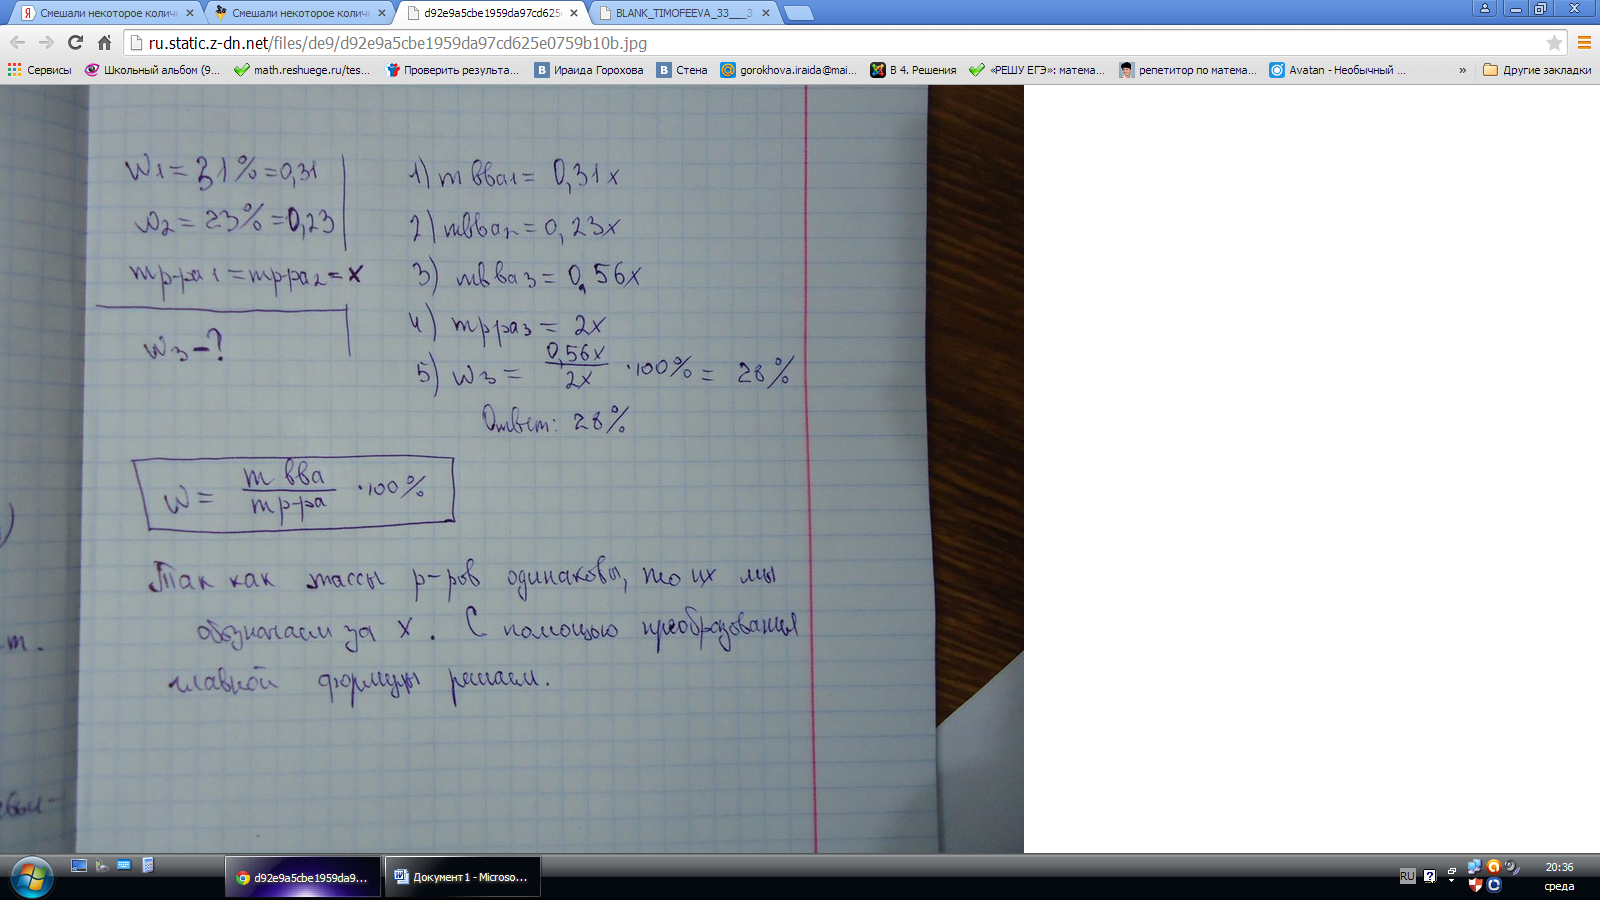 Смешали некоторое колич
Смешали некоторое колич
d92e9a5cbe1959da97cd625
BLANK_TIMOFEEVA_33___3
ru.static.z-dn.net/files/de9/d92e9a5cbe1959da97cd625e0759b10b.jpg
Сервисы
Школьный альбом (9...
math.reshuege.ru/tes...
Проверить результа...
Ираида Горохова
Стена
gorokhova.iraida@mai...
В 4. Решения
«РЕШУ ЕГЭ»: матема...
репетитор по матема...
Avatan - Необычный ...
»
Другие закладки
W1 = 31% = 0,31
W2 = 23% = 0,23
mр-ра1 = mр-ра2 = x
W3 - ?
1) m вва1 = 0,31x
2) mвва2 = 0,23x
3) mвва3 = 0,56x
4) mр-ра3 = 2x
5) W3 = 0,56x / 2x · 100% = 28%
Ответ: 28%
W = m вва / mр-ра · 100%
Так как массы р-ров одинаковы, то их мы
обозначаем за x. С помощью преобразования
главной формулы решаем.
т.
d92e9a5cbe1959da9...
Документ1 - Microso...
RU
20:36
среда